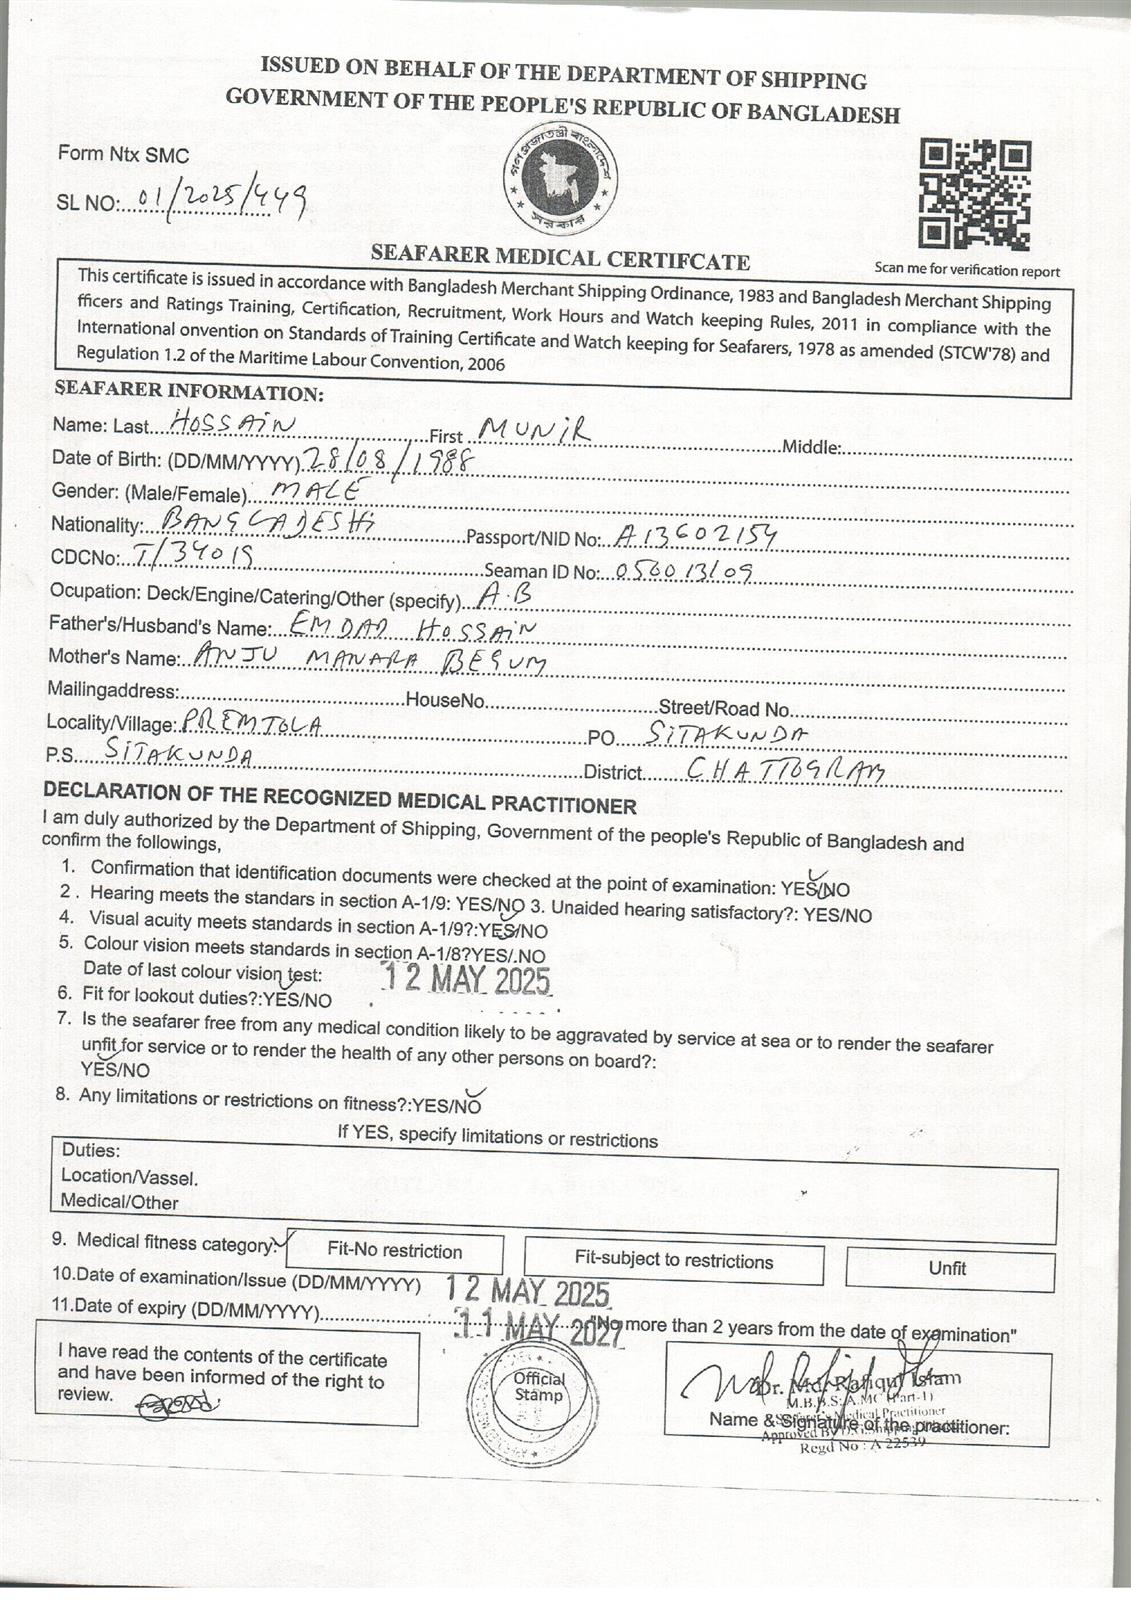 ISSUED ON BEHALF OF THE DEPARTMENT OF SHIPPING
GOVERNMENT OF THE PEOPLE'S REPUBLIC OF BANGLADESH
Form Ntx SMC
SL NO:..01/2025/449
গণপ্রজাতন্ত্রী বাংলাদেশ
সরকার
SEAFARER MEDICAL CERTIFCATE
Scan me for verification report
This certificate is issued in accordance with Bangladesh Merchant Shipping Ordinance, 1983 and Bangladesh Merchant Shipping
fficers and Ratings Training, Certification, Recruitment, Work Hours and Watch keeping Rules, 2011 in compliance with the
International onvention on Standards of Training Certificate and Watch keeping for Seafarers, 1978 as amended (STCW'78) and
Regulation 1.2 of the Maritime Labour Convention, 2006
SEAFARER INFORMATION:
Name: Last...HOSSAIN First MUNIR Middle:
Date of Birth: (DD/MM/YYYY) 28/08/1988
Gender: (Male/Female) MALE
Nationality: BANGLADESHI Passport/NID No: A13602154
CDCNo: T/34019 Seaman ID No: 056013109
Ocupation: Deck/Engine/Catering/Other (specify) A.B
Father's/Husband's Name: EMDAD HOSSAIN
Mother's Name: ANJU MANARA BEGUM
Mailingaddress: HouseNo. Street/Road No.
Locality/Village: PREMTOLA PO SITAKUNDA
P.S. SITAKUNDA District CHATTOGRAM
DECLARATION OF THE RECOGNIZED MEDICAL PRACTITIONER
I am duly authorized by the Department of Shipping, Government of the people's Republic of Bangladesh and
confirm the followings,
1. Confirmation that identification documents were checked at the point of examination: YES/NO
2 . Hearing meets the standars in section A-1/9: YES/NO 3. Unaided hearing satisfactory?: YES/NO
4. Visual acuity meets standards in section A-1/9?:YES/NO
5. Colour vision meets standards in section A-1/8?YES/.NO
Date of last colour vision test: 12 MAY 2025
6. Fit for lookout duties?:YES/NO
7. Is the seafarer free from any medical condition likely to be aggravated by service at sea or to render the seafarer
unfit for service or to render the health of any other persons on board?:
YES/NO
8. Any limitations or restrictions on fitness?:YES/NO
If YES, specify limitations or restrictions
Duties:
Location/Vassel.
Medical/Other
9. Medical fitness category: Fit-No restriction Fit-subject to restrictions Unfit
10.Date of examination/Issue (DD/MM/YYYY) 12 MAY 2025
11.Date of expiry (DD/MM/YYYY) 11 MAY 2027 "No more than 2 years from the date of examination"
I have read the contents of the certificate
and have been informed of the right to
review.
Official
Stamp
Dr. Md. Rafiqul Islam
M.B.B.S. A.MC (Part-1)
Medical Practitioner
Name & Signature of the practitioner:
Approved By
Regd No : A 22539